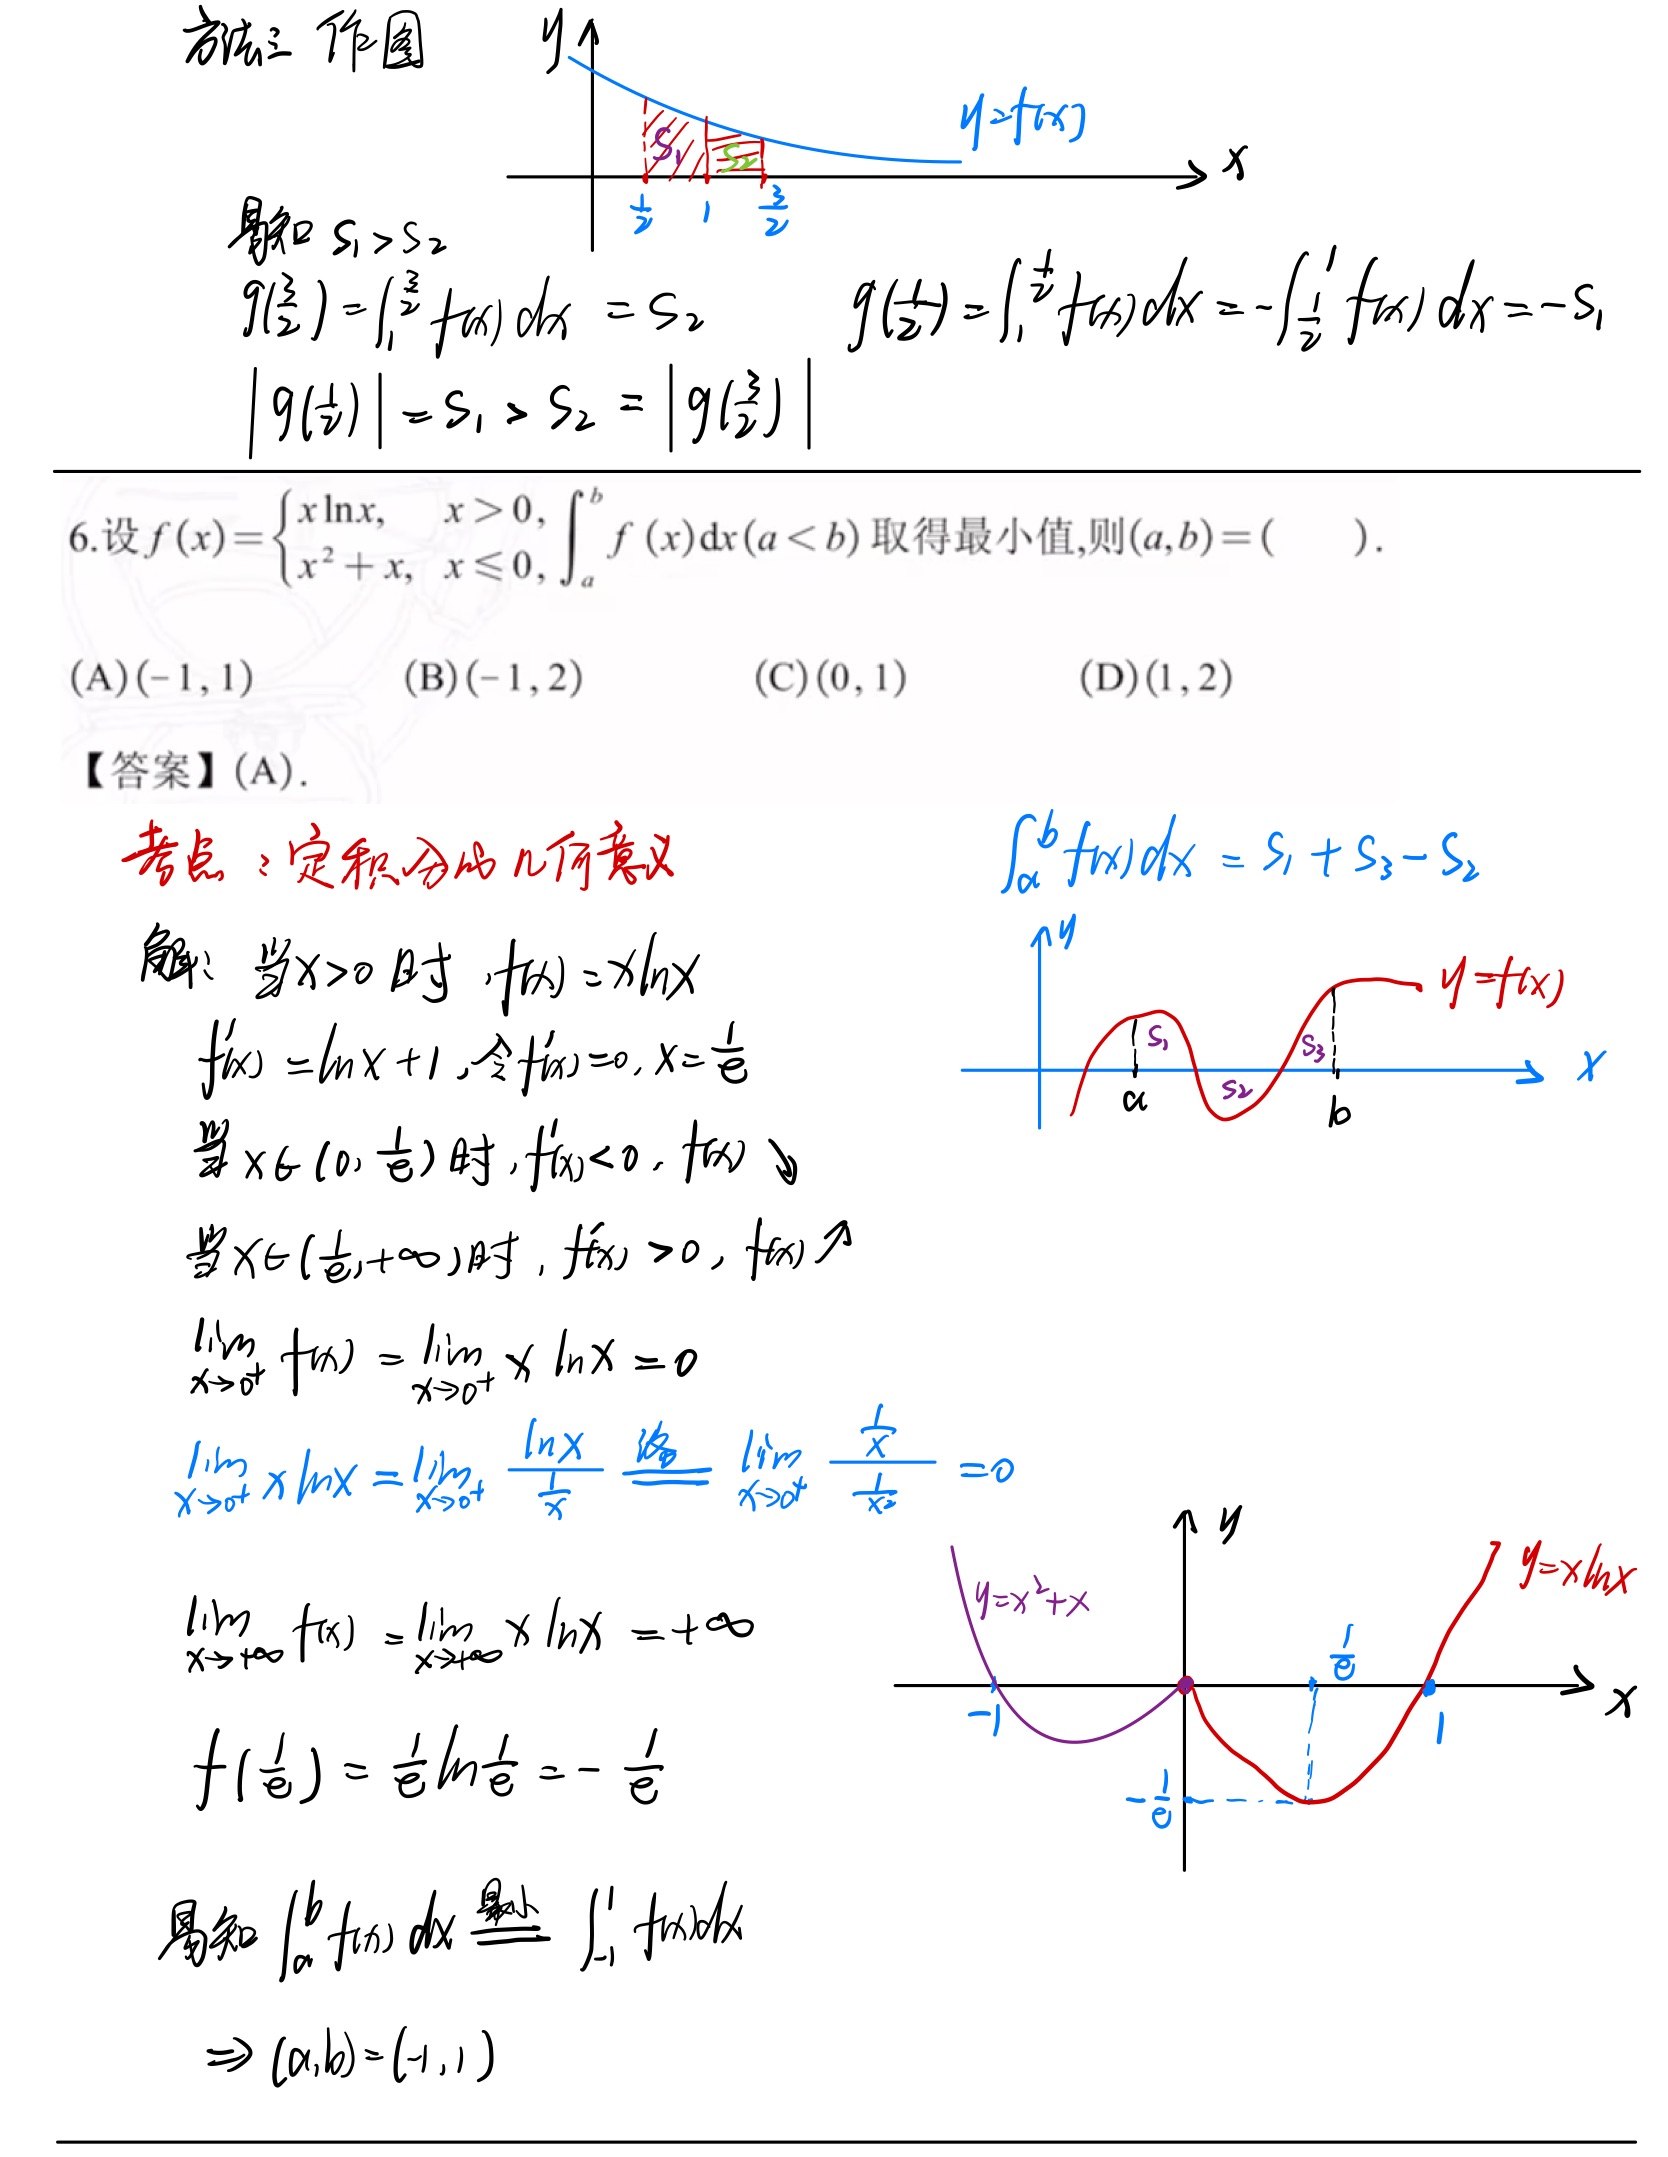 方法三 作图
y
y=f(x)
S₁ S₂
x
1/2 1 3/2
易知 S₁>S₂
g(3/2)=∫₁^(3/2) f(x)dx=S₂ g(1/2)=∫₁^(1/2) f(x)dx=-∫_(1/2)^1 f(x)dx=-S₁
|g(1/2)|=S₁>S₂=|g(3/2)|
6.设 f(x)={x ln x, x>0, x²+x, x≤0, ∫ₐᵇ f(x)dx(a<b) 取得最小值,则(a,b)=( ).
(A)(-1,1) (B)(-1,2) (C)(0,1) (D)(1,2)
【答案】(A).
考点:定积分的几何意义
∫ₐᵇ f(x)dx=S₁+S₃-S₂
y
y=f(x)
S₁ S₃
x
S₂
a b
解: 当x>0时,f(x)=xlnx
f'(x)=lnx+1,令f'(x)=0,x=1/e
当x∈(0,1/e)时,f'(x)<0,f(x)↘
当x∈(1/e,+∞)时,f'(x)>0,f(x)↗
lim x→0⁺ f(x)=lim x→0⁺ x lnx=0
lim x→0⁺ x lnx=lim x→0⁺ lnx/(1/x) 洛= lim x→0⁺ (1/x)/(1/x²)=0
lim x→+∞ f(x)=lim x→+∞ x lnx=+∞
f(1/e)=1/e ln 1/e=-1/e
y
y=x²+x
y=xlnx
1/e
x
-1 1
-1/e
易知 ∫ₐᵇ f(x)dx 最小= ∫₋₁¹ f(x)dx
⇒(a,b)=(-1,1)